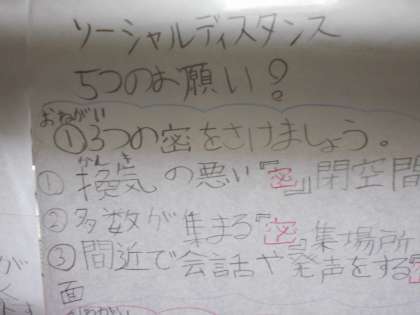 ソーシャルディスタンス
5つのお願い?
おねがい
①3つの密をさけましょう。
かんき
①換気の悪い『密』閉空間
②多数が集まる『密』集場所
③間近で会話や発声をする
面